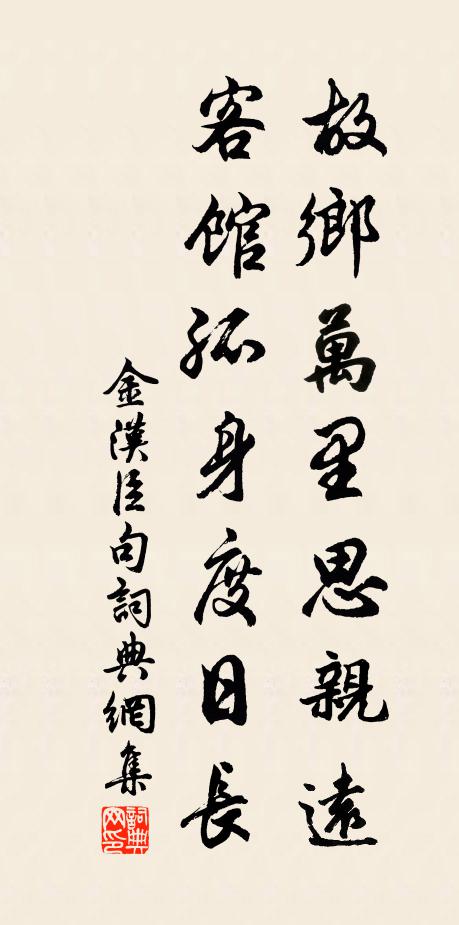 故鄉萬里思親遠
客館孤身度日長
金漢臣句詞典網集
詞典
网印